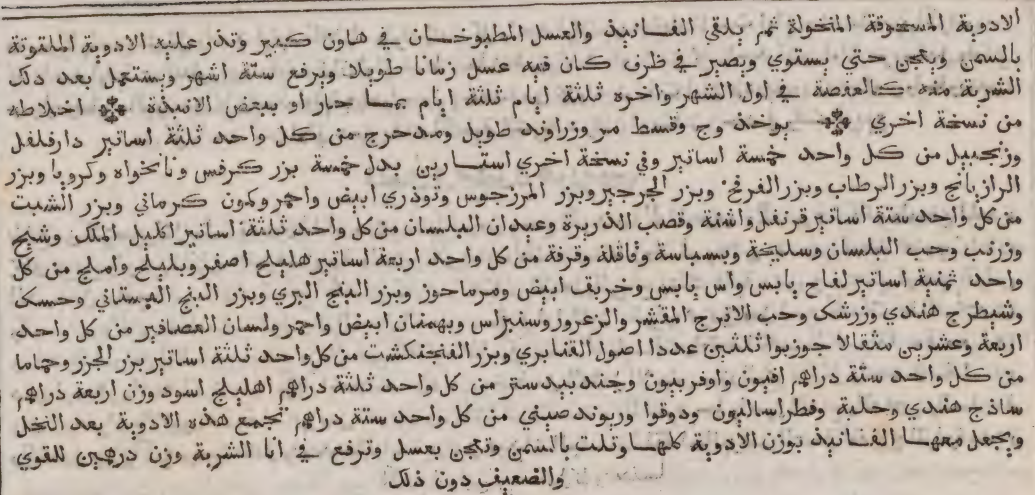 الادوية المسحوقة المنخولة ثم يلقي الفانيذ والعسل المطبوخان في هاون كبير وتذر عليه الادوية الملتوتة
بالسمن ويعجن حتي يستوي ويصير في ظرف كان فيه عسل زمانا طويلا ويرفع ستة اشهر ويستعمل بعد ذلك
الشربة منه كالعفصة في اول الشهر واخره ثلثة ايام ثلثة ايام بماء حار او ببعض الانبذة اخلاطه
من نسخة اخري يوخذ وج وقسط مر وزراوند طويل ومدحرج من كل واحد ثلثة اساتير دارفلفل
وزنجبيل من كل واحد خمسة اساتير وفي نسخة اخري استارين بدل خمسة بزر كرفس ونانخواه وكرويا وبزر
الرازيانج وبزر الرطاب وبزر الفرفخ وبزر الجرجير وبزر المرزجوس وتوذري ابيض واحمر وكمون كرماني وبزر الشبت
من كل واحد ستة اساتير قرنفل واشنة وقصب الذريرة وعيدان البلسان من كل واحد ثلثة اساتير اكليل الملك وشيح
وزرنب وحب البلسان وسليخة وبسباسة وقاقلة وقرفة من كل واحد اربعة اساتير هليلج اصفر وبليلج واملج من كل
واحد ثمنية اساتير لفاح يابس واس يابس وخربف ابيض ومرماحوز وبزر البنج البري وبزر البنج البستاني وحسك
وشيطرج هندي وزرشك وحب الاترج المقشر والزعرور وسنبراس وبهمنان ابيض واحمر ولسان العصافير من كل واحد
اربعة وعشرين مثقالا جوزبوا ثلثين عددا اصول القنابري وبزر الفنجنكشت من كل واحد ثلثة اساتير بزر الجزر وحماما
من كل واحد ستة دراهم افيون واوفربيون وجندبيدستر من كل واحد ثلثة دراهم اهليلج اسود وزن اربعة دراهم
ساذج هندي وحلبة وفطراساليون ودوقوا وريوند صيني من كل واحد ستة دراهم تجمع هذه الادوية بعد النخل
ويجعل معها الفانيذ بوزن الادوية كلها وتلت بالسمن وتعجن بعسل وترفع في انا الشربة وزن درهمين للقوي
والضعيف دون ذلك